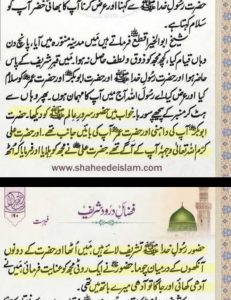 حضرت رسولِ خدا ﷺ سے کہنا اور عرض کرنا آپ کا بھائی خضر آپ کو
سلام کہتا ہے۔
شیخ ابوالخیر اقطعؒ فرماتے ہیں میں مدینہ منورہ میں آیا، پانچ دن
وہاں قیام کیا، کچھ مجھ کو ذوق و لطف حاصل نہ ہوا، میں قبر شریف کے پاس
حاضر ہوا اور حضرت رسولِ خدا ﷺ اور حضرت ابوبکرؓ اور حضرت عمرؓ کو سلام
کیا اور عرض کیا اے رسول اللہ آج میں آپ کا مہمان ہوں۔ پھر وہاں سے
ہٹ کر منبر کے پیچھے سو رہا خواب میں حضور سرورِ عالم ﷺ کو دیکھا۔ حضرت
ابوبکرؓ آپ کی داہنی اور حضرت عمرؓ آپ کی بائیں جانب تھے۔ اور حضرت علی
کرم اللہ تعالیٰ وجہہٗ آپ کے آگے تھے حضرت علیؓ نے مجھ کو ہلایا اور فرمایا کہ اُٹھ
www.shaheedeislam.com
فضائل درود شریف
فہرست
حضور رسولِ خدا ﷺ تشریف لائے ہیں میں اُٹھا اور حضرت کے دونوں
آنکھوں کے درمیان چوما، حضورؐ نے ایک روٹی مجھ کو عنایت فرمائی میں نے
آدھی کھائی اور جاگا تو آدھی میرے ہاتھ میں تھی۔